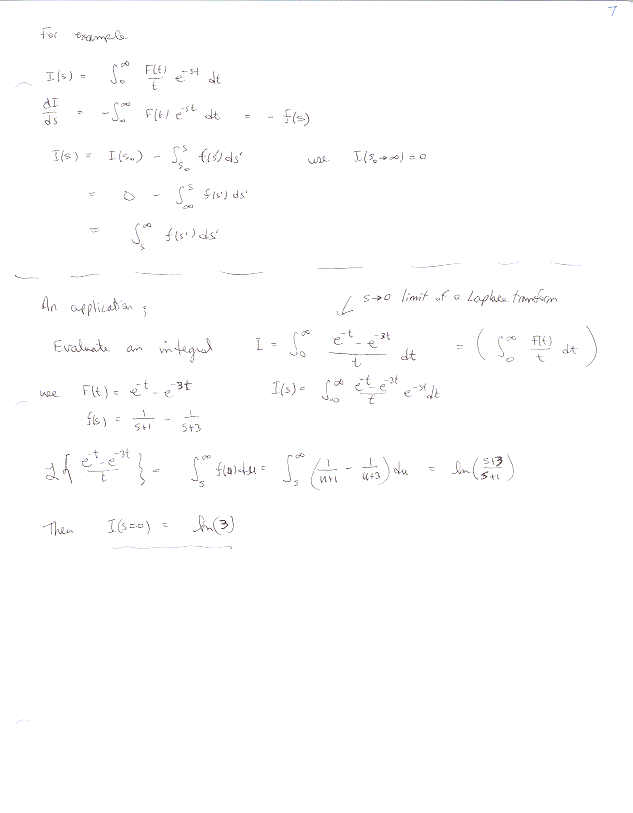 7
For example
I(s) = ∫₀^∞ F(t)/t e^{-st} dt
dI/ds = -∫₀^∞ F(t) e^{-st} dt = - f(s)
I(s) = I(s₀) - ∫_{s₀}^{s} f(s') ds' use I(s₀→∞) = 0
= 0 - ∫_∞^s f(s') ds'
= ∫_s^∞ f(s') ds'
An application ;
s→0 limit of a Laplace transform
Evaluate an integral I = ∫₀^∞ (e^{-t} - e^{-3t})/t dt = ( ∫₀^∞ F(t)/t dt )
use F(t) = e^{-t} - e^{-3t} I(s) = ∫₀^∞ (e^{-t} - e^{-3t})/t e^{-st} dt
f(s) = 1/(s+1) - 1/(s+3)
ℒ{ (e^{-t} - e^{-3t})/t } = ∫_s^∞ f(u) du = ∫_s^∞ ( 1/(u+1) - 1/(u+3) ) du = ln( (s+3)/(s+1) )
Then I(s=0) = ln(3)